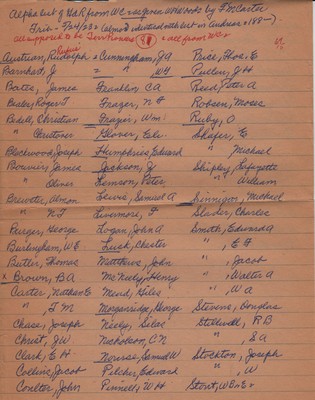 Alphabet of G.A.R. from W.C. as given on tablets by F. McCarter
Trib - 5/24/28 =
all supposed to be Ten
38 = all from W.C.
Austrian, Rudolph = Cunningham, J A Price, Thos. E
Barnhard, J = " W H Pullen, J H
Bates, James Franklin, C A Reed, Peter A
Besler, Rogert Frazer, N F Robson, Moses
Bedell, Christian Frazier, Wm. Ruby, O
" Glover, Eli Shafer, E
Blackwood, Joseph Humphries, Edward " Michael
Bouvier, James Jackson, J. Shipley, Lafayette
" Lemson, Peter " William
Brewster, Almon Lewis, Samuel A Sinnigon, Michael
" N F Livermore, F Slader, Charles
Burger, George Logan, John A Smith, Edward A
Burlingham, W E Lusk, Chester " , E F
Butler, Thomas Matthews, John " , Jacob
x Brown, B A McNulty, Henry " , Walter A
Carter, Nathan E Mead, Giles " , W A
" , F M Morganridge, George Stevens, Douglas
Chase, Joseph Neely, Silas Stilwell, R B
Christ, J W Nicholson, C N " , S A
Clark, E H Nourse, Samuel W Stockton, Joseph
Collins, Jacob Pilcher, Edward " , W
Coulter, John Pinnell, W H Stout,